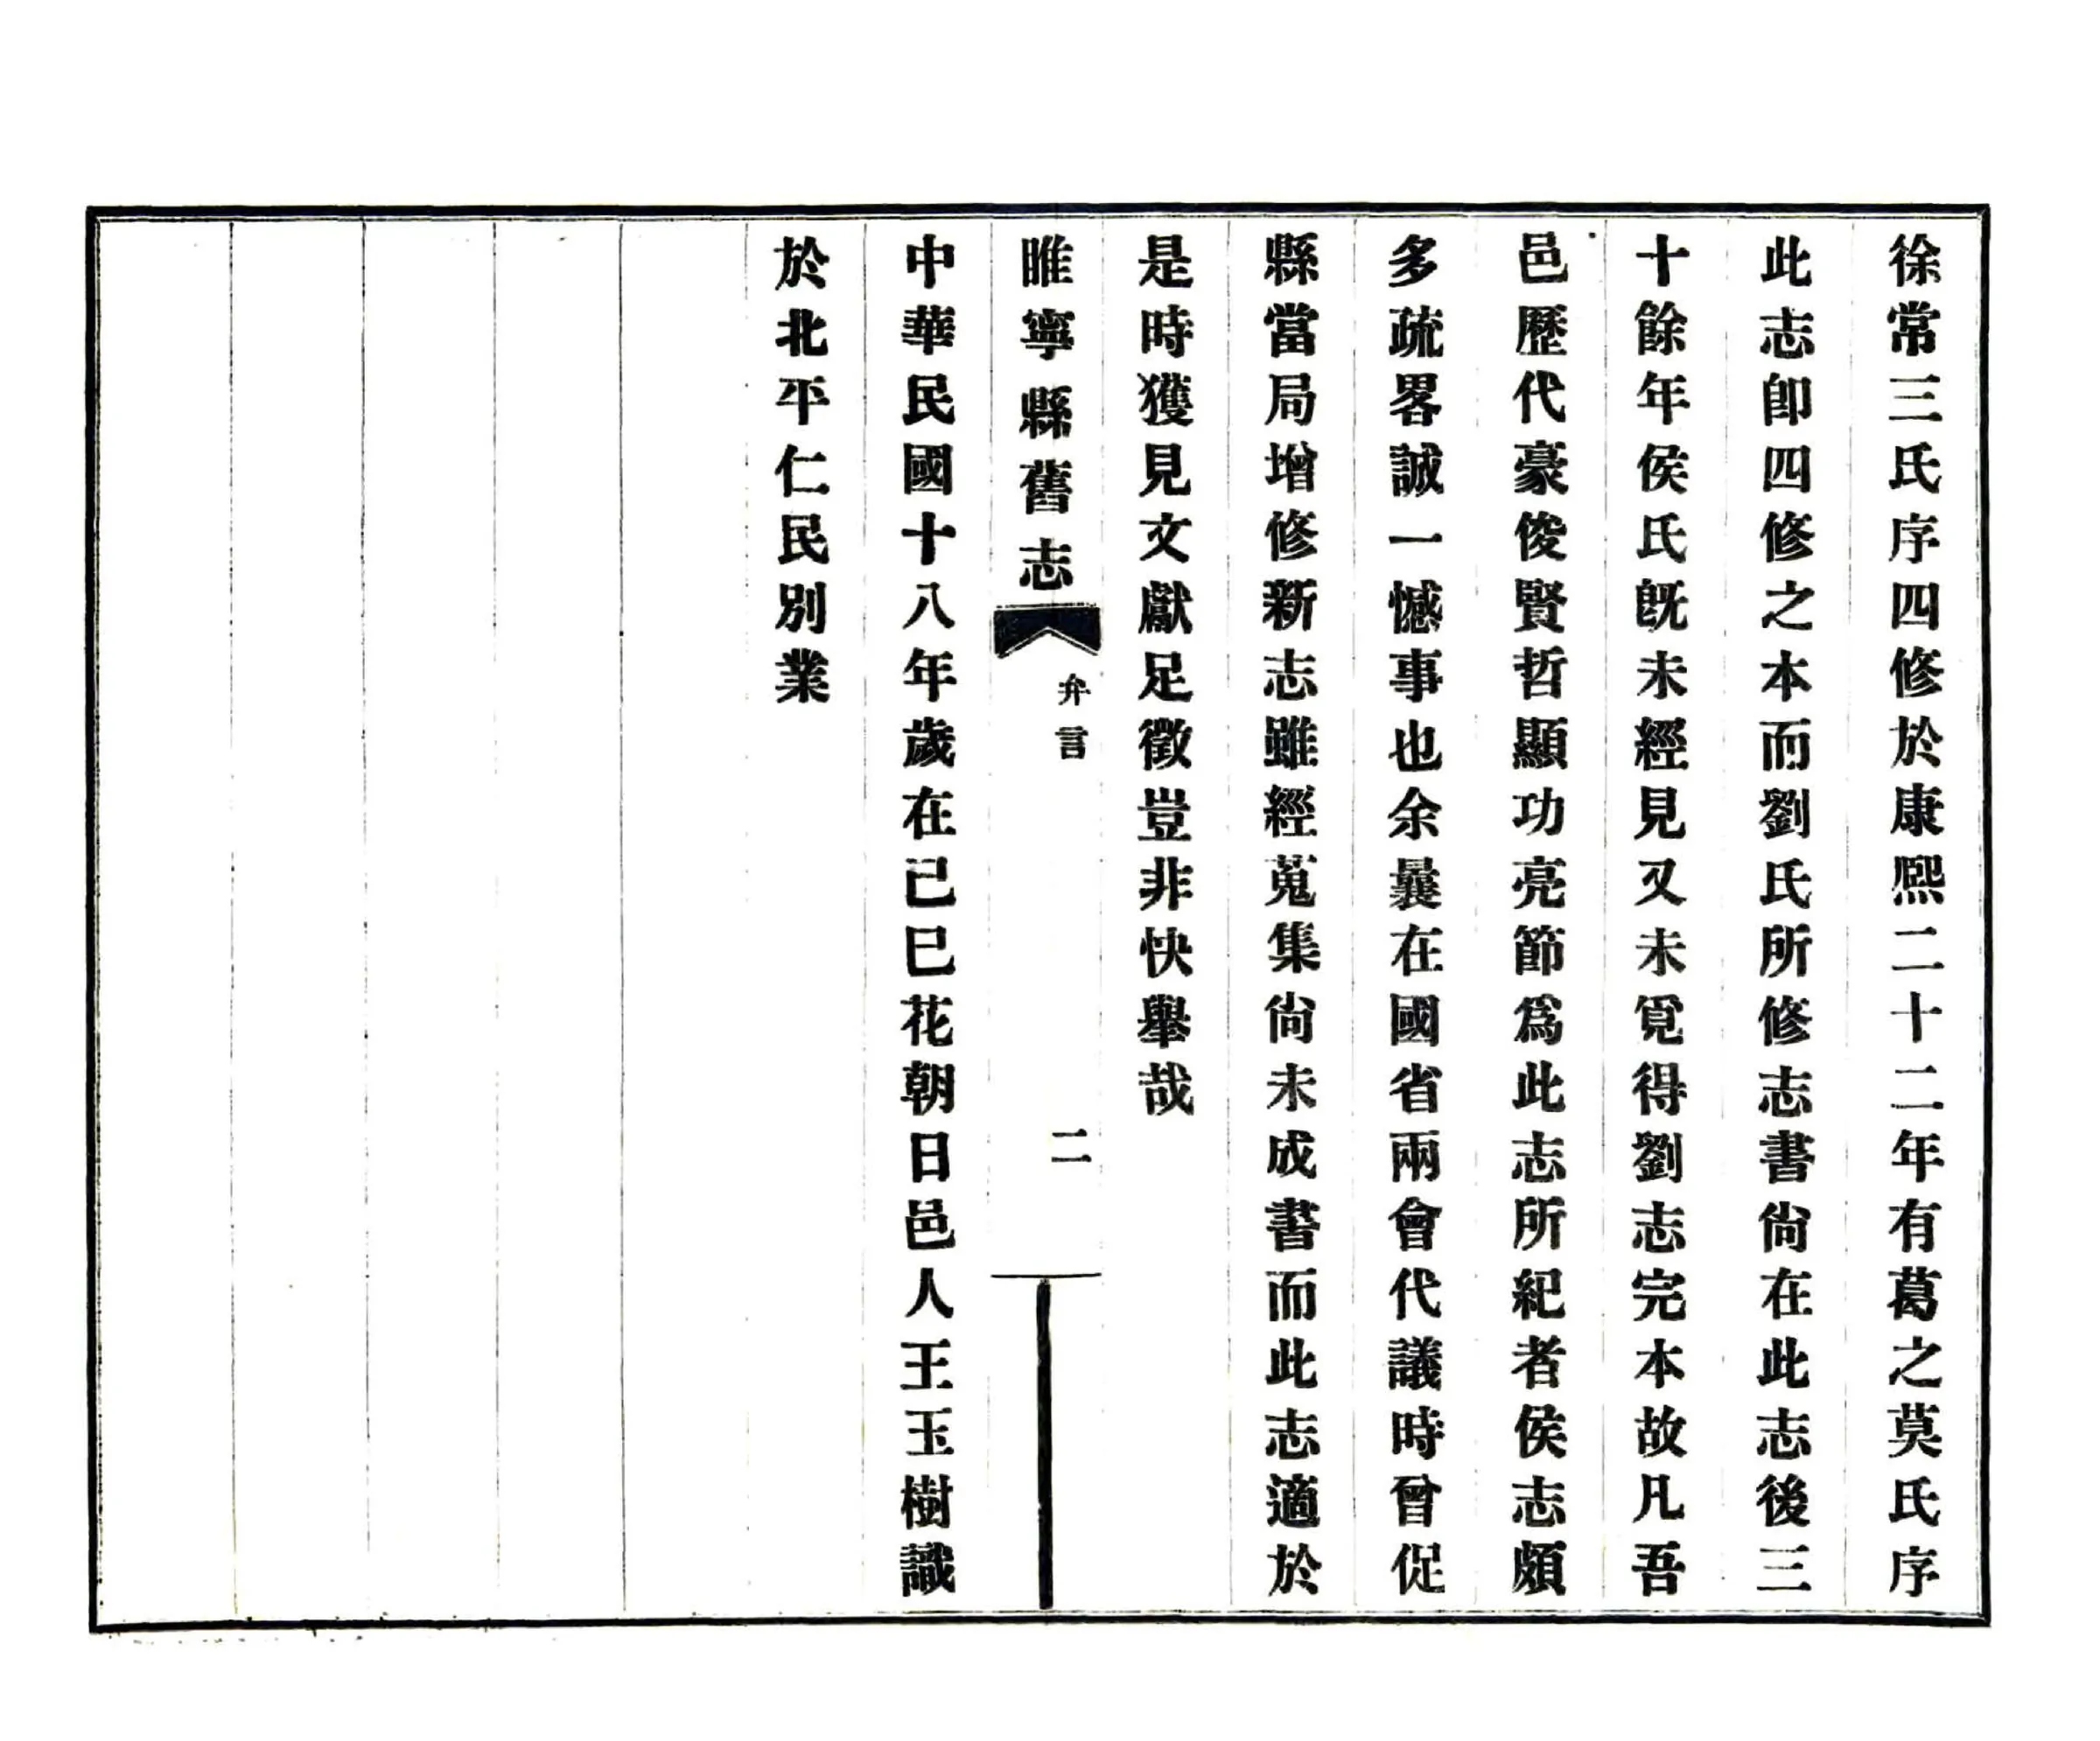 徐常三氏序四修於康熙二十二年有葛之莫氏序
此志卽四修之本而劉氏所修志書尙在此志後三
十餘年侯氏旣未經見又未覓得劉志完本故凡吾
邑歷代豪俊賢哲顯功亮節爲此志所紀者侯志頗
多疏畧誠一憾事也余曩在國省兩會代議時曾促
縣當局增修新志雖經蒐集尙未成書而此志適於
是時獲見文獻足徵豈非快舉哉
睢寧縣舊志
弁言
二
中華民國十八年歲在己巳花朝日邑人王玉樹識
於北平仁民別業